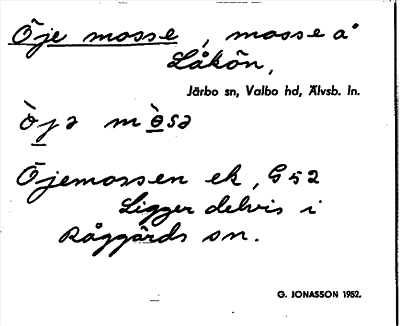 Öje mosse, mosse å
Låkön,
Järbo sn, Valbo hd, Älvsb. ln.
ò̀jə mɵ̀sə
Öjemossen ek, G 52
Ligger delvis i
Råggärds sn.
G. JONASSON 1952.